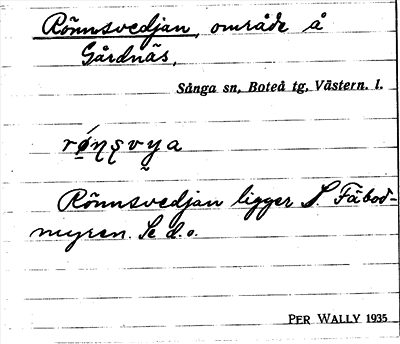 Rönnsvedjan, område å
Gårdnäs,
Sånga sn, Boteå tg, Västern. l.
Rönnsvedjan ligger S Fäbod-
myren. Se d. o.
PER WALLY 1935